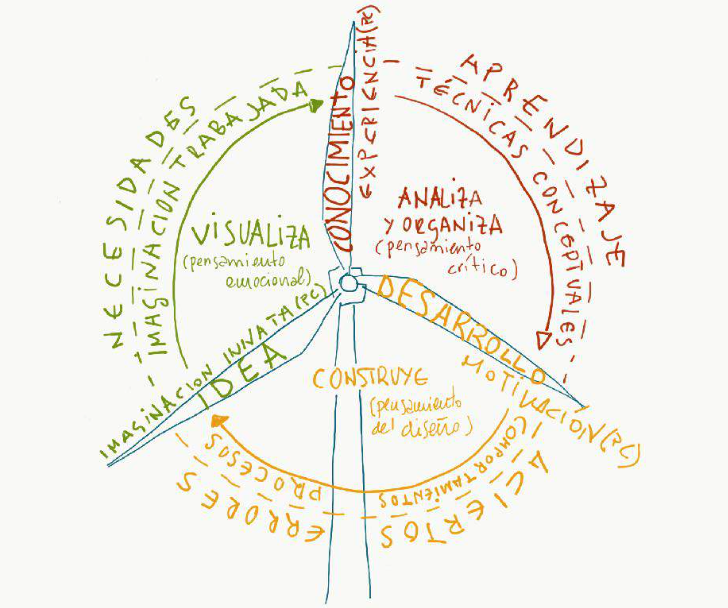 CONOCIMIENTO
EXPERIENCIA (PC)
APRENDIZAJE
TÉCNICAS CONCEPTUALES
ANALIZA
Y ORGANIZA
(pensamiento
crítico)
NECESIDADES
IMAGINACION TRABAJADA
VISUALIZA
(pensamiento
emocional)
IMAGINACION INNATA (PC)
IDEA
DESARROLLO
MOTIVACIÓN (PC)
CONSTRUYE
(pensamiento
del diseño)
ACIERTOS
COMPORTAMIENTOS
ERRORES
PROCESOS